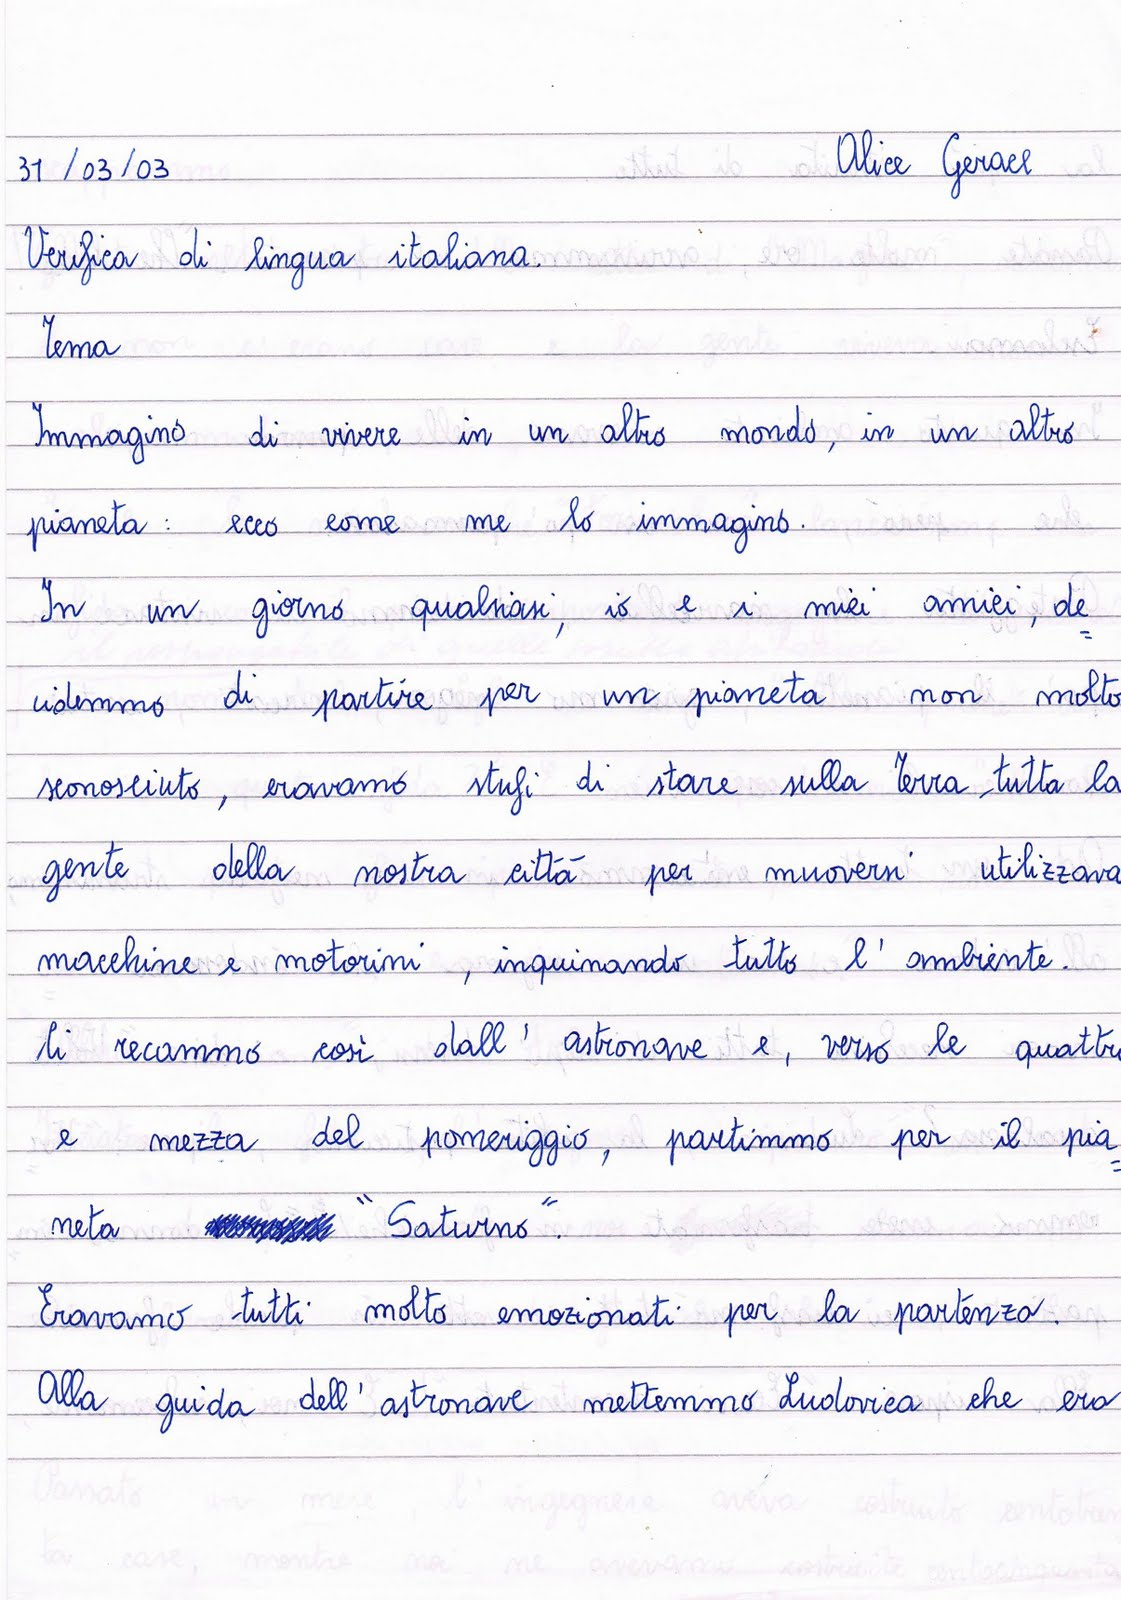 31/03/03 Alice Geraci
Verifica di lingua italiana.
Tema
Immagino di vivere in un altro mondo, in un altro
pianeta: ecco come me lo immagino.
In un giorno qualsiasi, io e i miei amici, de=
cidemmo di partire per un pianeta non molto
sconosciuto, eravamo stufi di stare sulla Terra, tutta la
gente della nostra città per muoversi utilizzava
macchine e motorini, inquinando tutto l'ambiente.
Ci recammo così dall'astronave e, verso le quattro
e mezza del pomeriggio, partimmo per il pia=
neta "Saturno".
Eravamo tutti molto emozionati per la partenza.
Alla guida dell'astronave mettemmo Ludovica che era